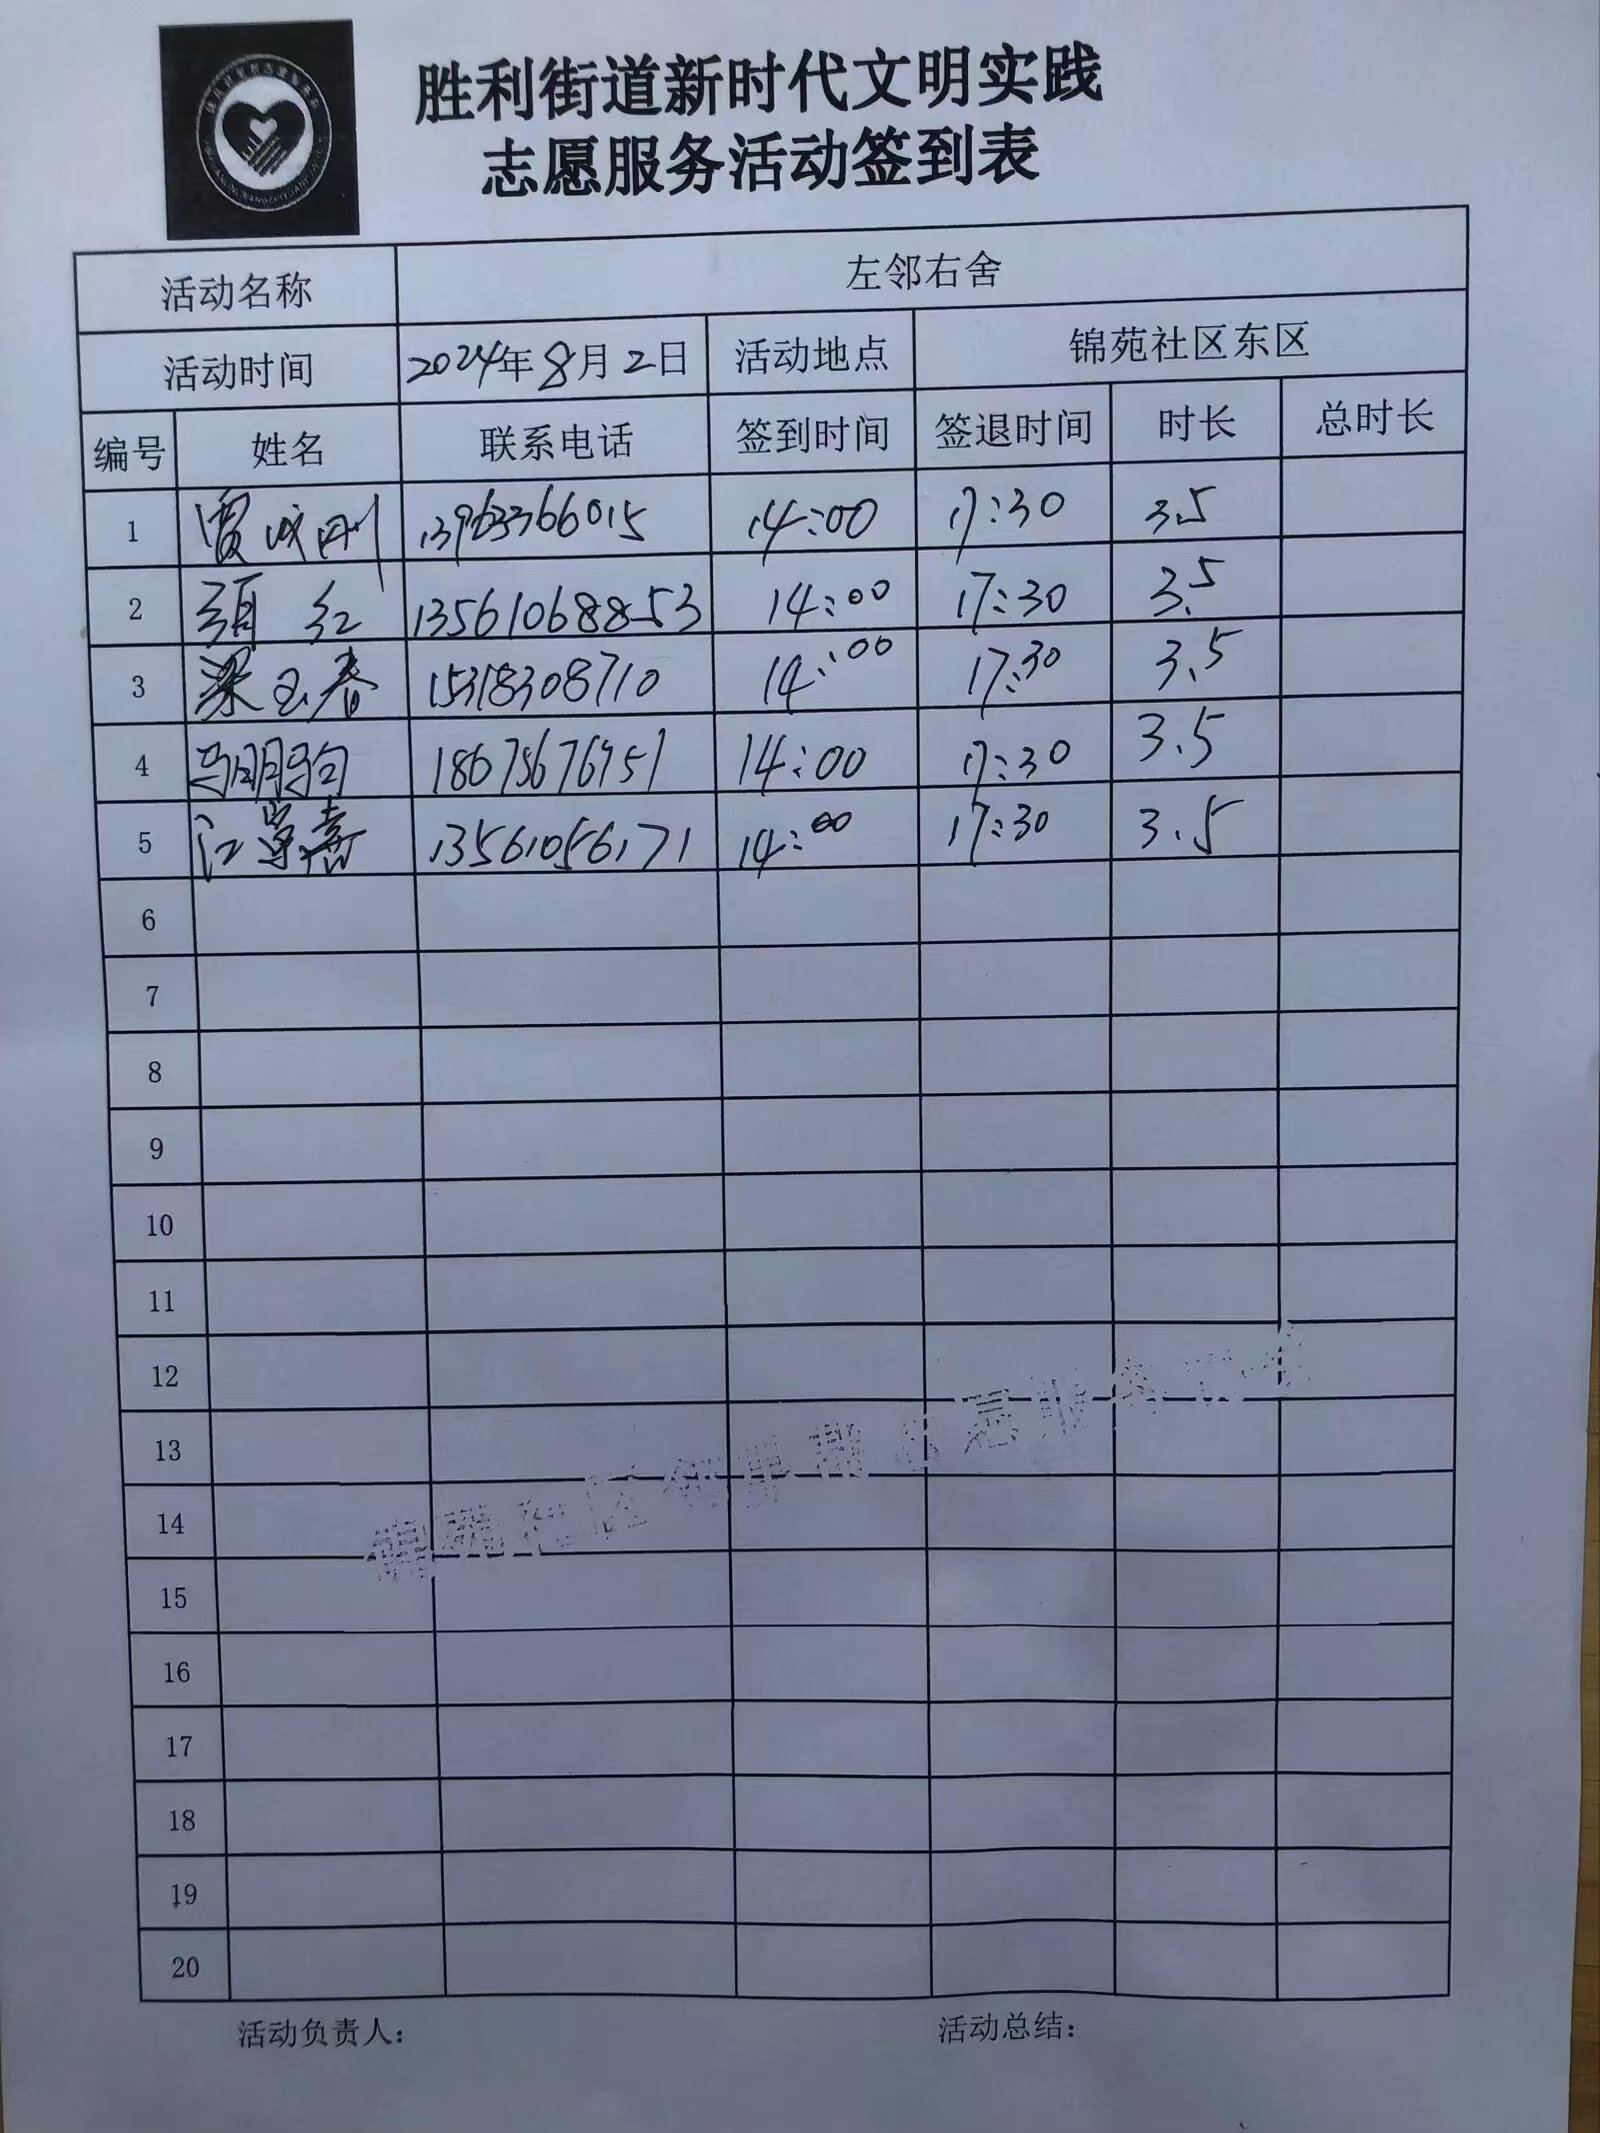 胜利街道新时代文明实践
志愿服务活动签到表
活动名称 左邻右舍
活动时间 2024年8月2日 活动地点 锦苑社区东区
编号 姓名 联系电话 签到时间 签退时间 时长 总时长
1 贾成刚 13963366015 14:00 17:30 3.5
2 项红 13561068853 14:00 17:30 3.5
3 梁玉春 15318308710 14:00 17:30 3.5
4 14:00 17:30 3.5
5 13561056171 14:00 17:30 3.5
6
7
8
9
10
11
12
13
14
15
16
17
18
19
20
活动负责人： 活动总结：